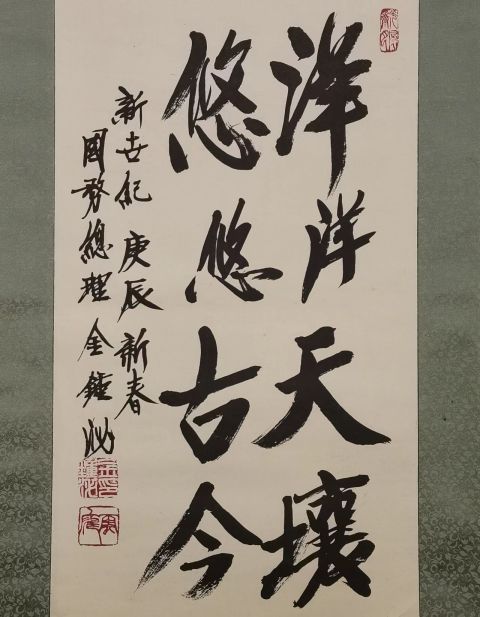 洋洋天壤
悠悠古今
新世紀 庚辰 新春
國務總理 金鍾泌